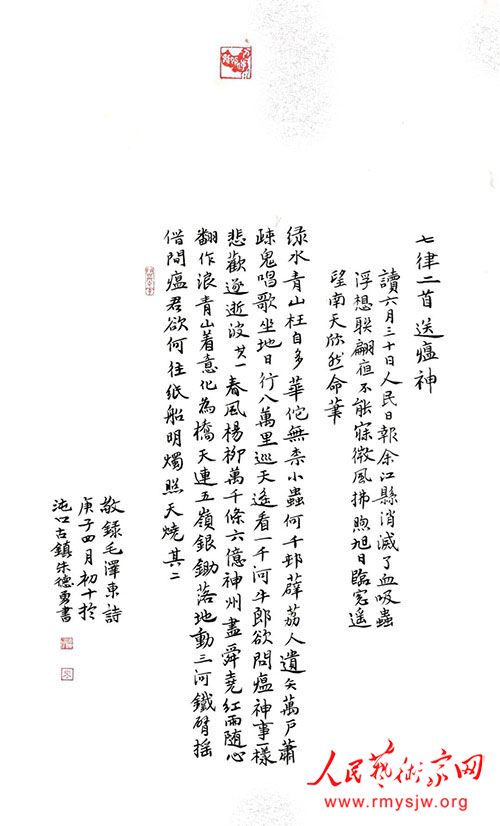 七律二首送瘟神
讀六月三十日人民日報余江縣消滅了血吸蟲
浮想联翩夜不能寐微風拂煦旭日臨窓遥
望南天欣然命筆
绿水青山枉自多華佗無柰小蟲何千邨薜荔人遺矢萬戶蕭
疎鬼唱歌坐地日行八萬里巡天遥看一千河牛郎欲問瘟神事一樣
悲歡逐逝波其一春風楊柳萬千條六億神州盡舜堯红雨随心
翻作浪青山着意化為橋天連五嶺銀鋤落地動三河鐵臂摇
借問瘟君欲何往纸船明燭照天燒其二
敬録毛澤東詩
庚子四月初十於
沌口古鎮朱德勇書
人民艺術家网
www.rmysjw.org